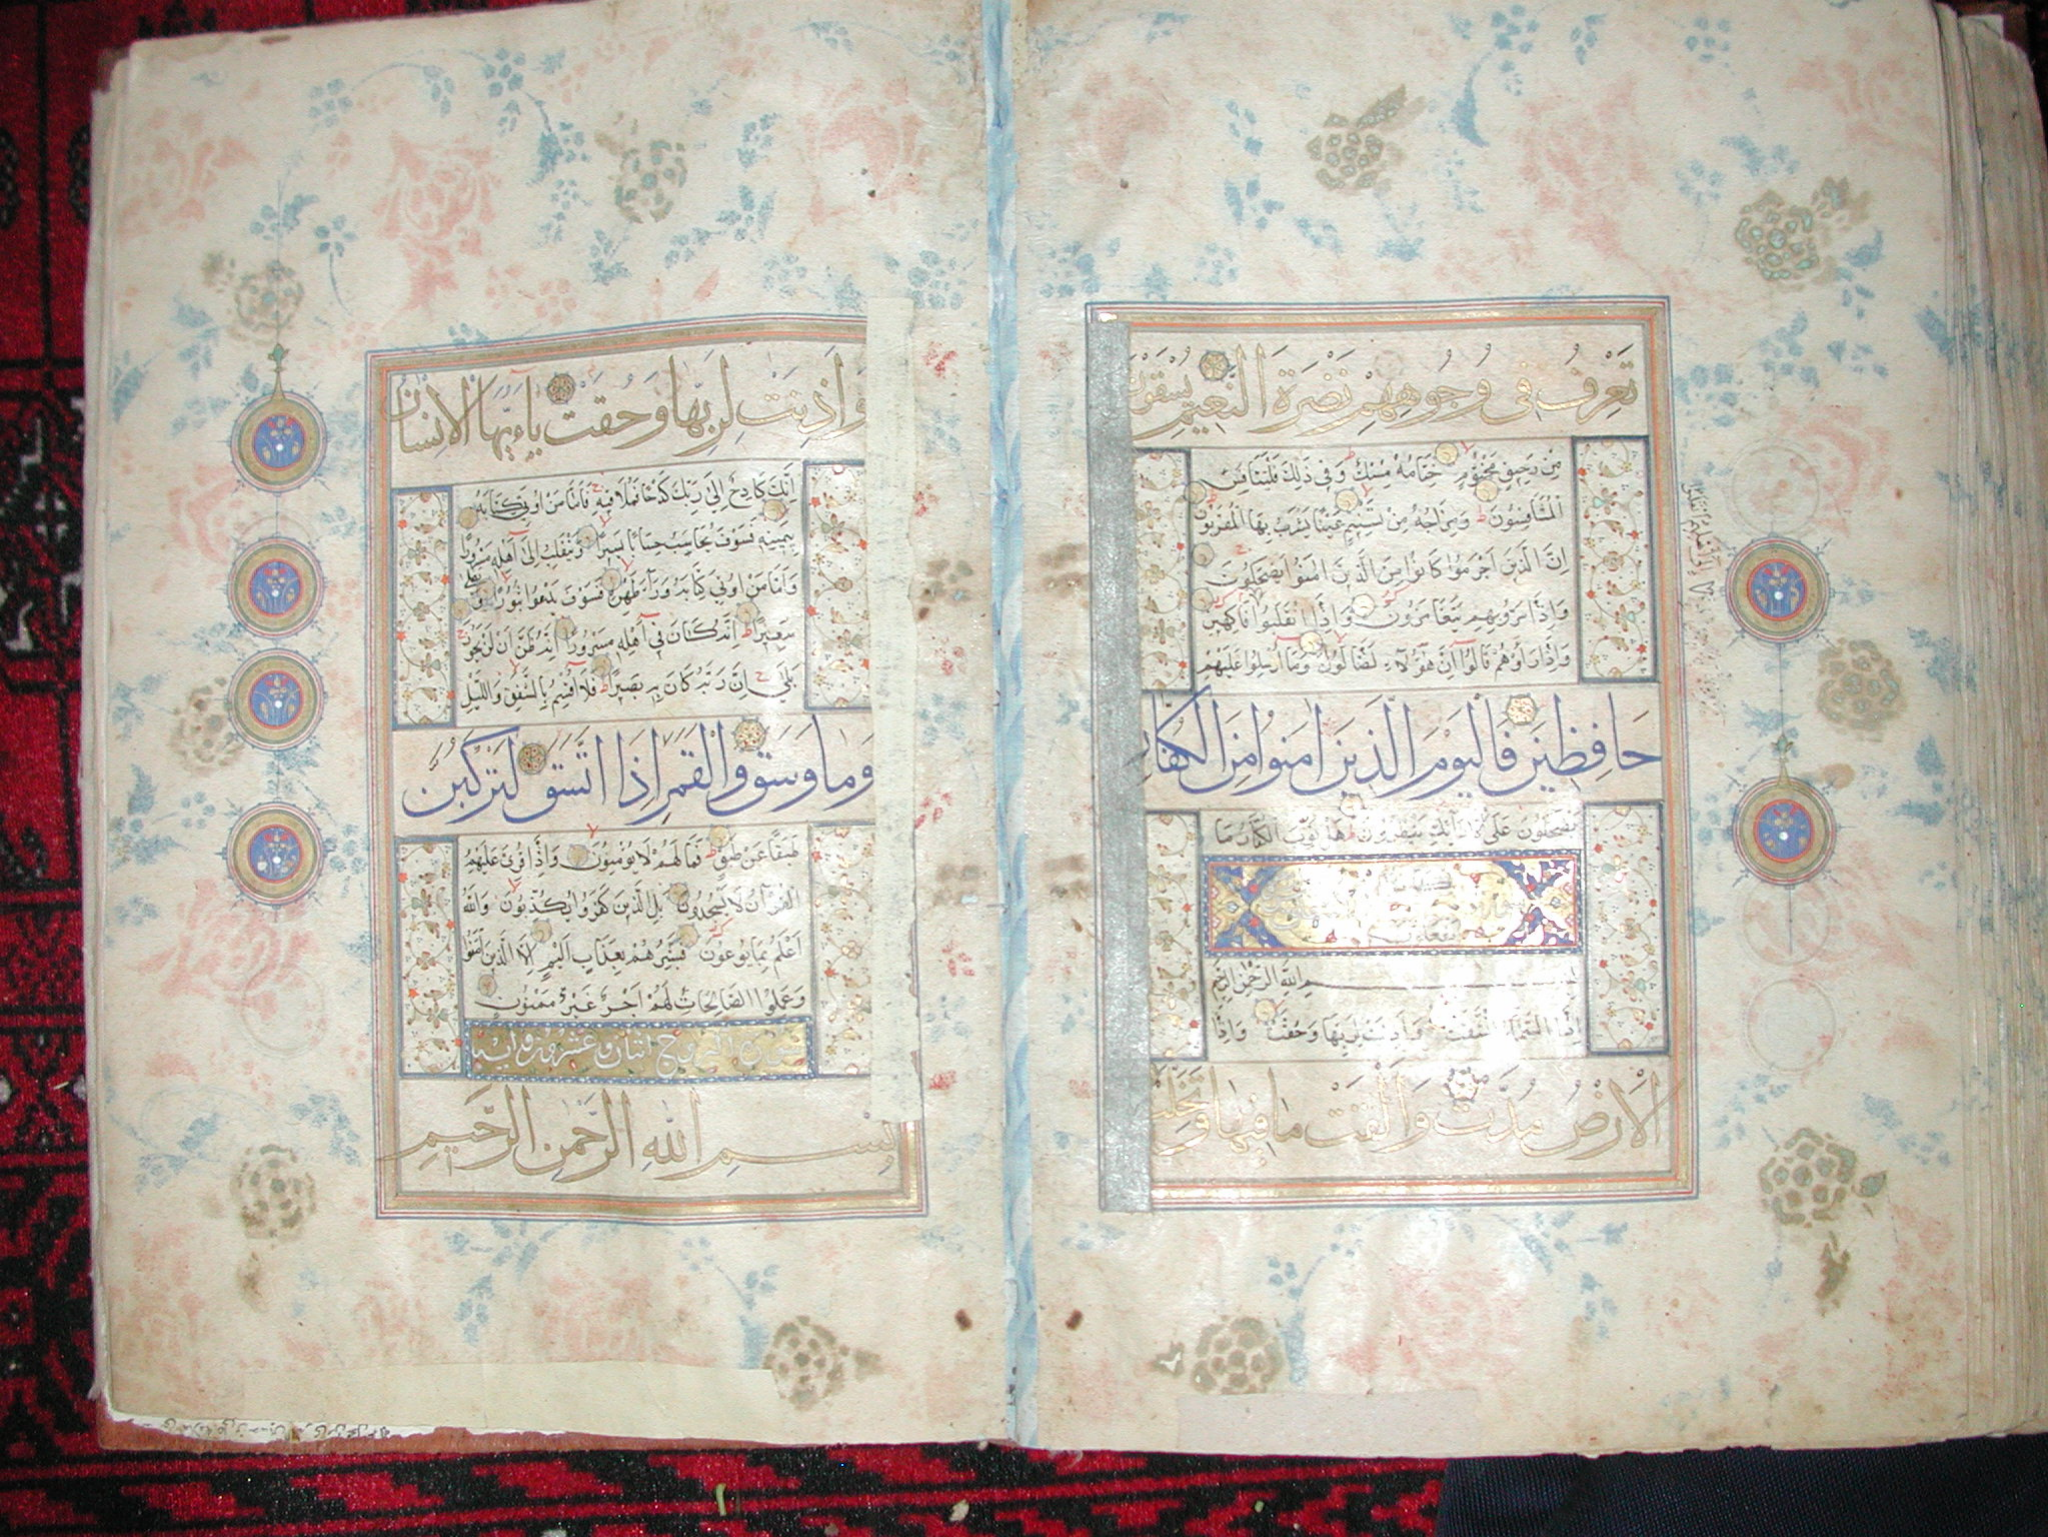 تعرف في وجوههم نضرة النعيم يسقون
من رحيق مختوم ختامه مسك وفي ذلك فليتنافس
المتنافسون ومزاجه من تسنيم عينا يشرب بها المقربون
ان الذين اجرموا كانوا من الذين امنوا يضحكون
واذا مروا بهم يتغامزون واذا انقلبوا فاكهين
واذا راوهم قالوا ان هؤلاء لضالون وما ارسلوا عليهم
حافظين فاليوم الذين امنوا من الكفار
يضحكون على الارائك ينظرون هل ثوب الكفار ما
بسم الله الرحمن الرحيم
اذا السماء انشقت واذنت لربها وحقت واذا
الارض مدت والقت ما فيها وتخلت
واذنت لربها وحقت ياءيها الانسان
انك كادح الى ربك كدحا فملاقيه فاما من اوتي كتابه
بيمينه فسوف يحاسب حسابا يسيرا وينقلب الى اهله مسرورا
واما من اوتي كتابه وراء ظهره فسوف يدعوا ثبورا ويصلى
سعيرا انه كان في اهله مسرورا انه ظن ان لن يحور
بلى ان ربه كان به بصيرا فلا اقسم بالشفق والليل
وما وسق والقمر اذا اتسق لتركبن
طبقا عن طبق فما لهم لا يؤمنون واذا قرئ عليهم
القرآن لا يسجدون بل الذين كفروا يكذبون والله
اعلم بما يوعون فبشرهم بعذاب اليم الا الذين امنوا
وعملوا الصالحات لهم اجر غير ممنون
سورة البروج اثنان وعشرون
بسم الله الرحمن الرحيم